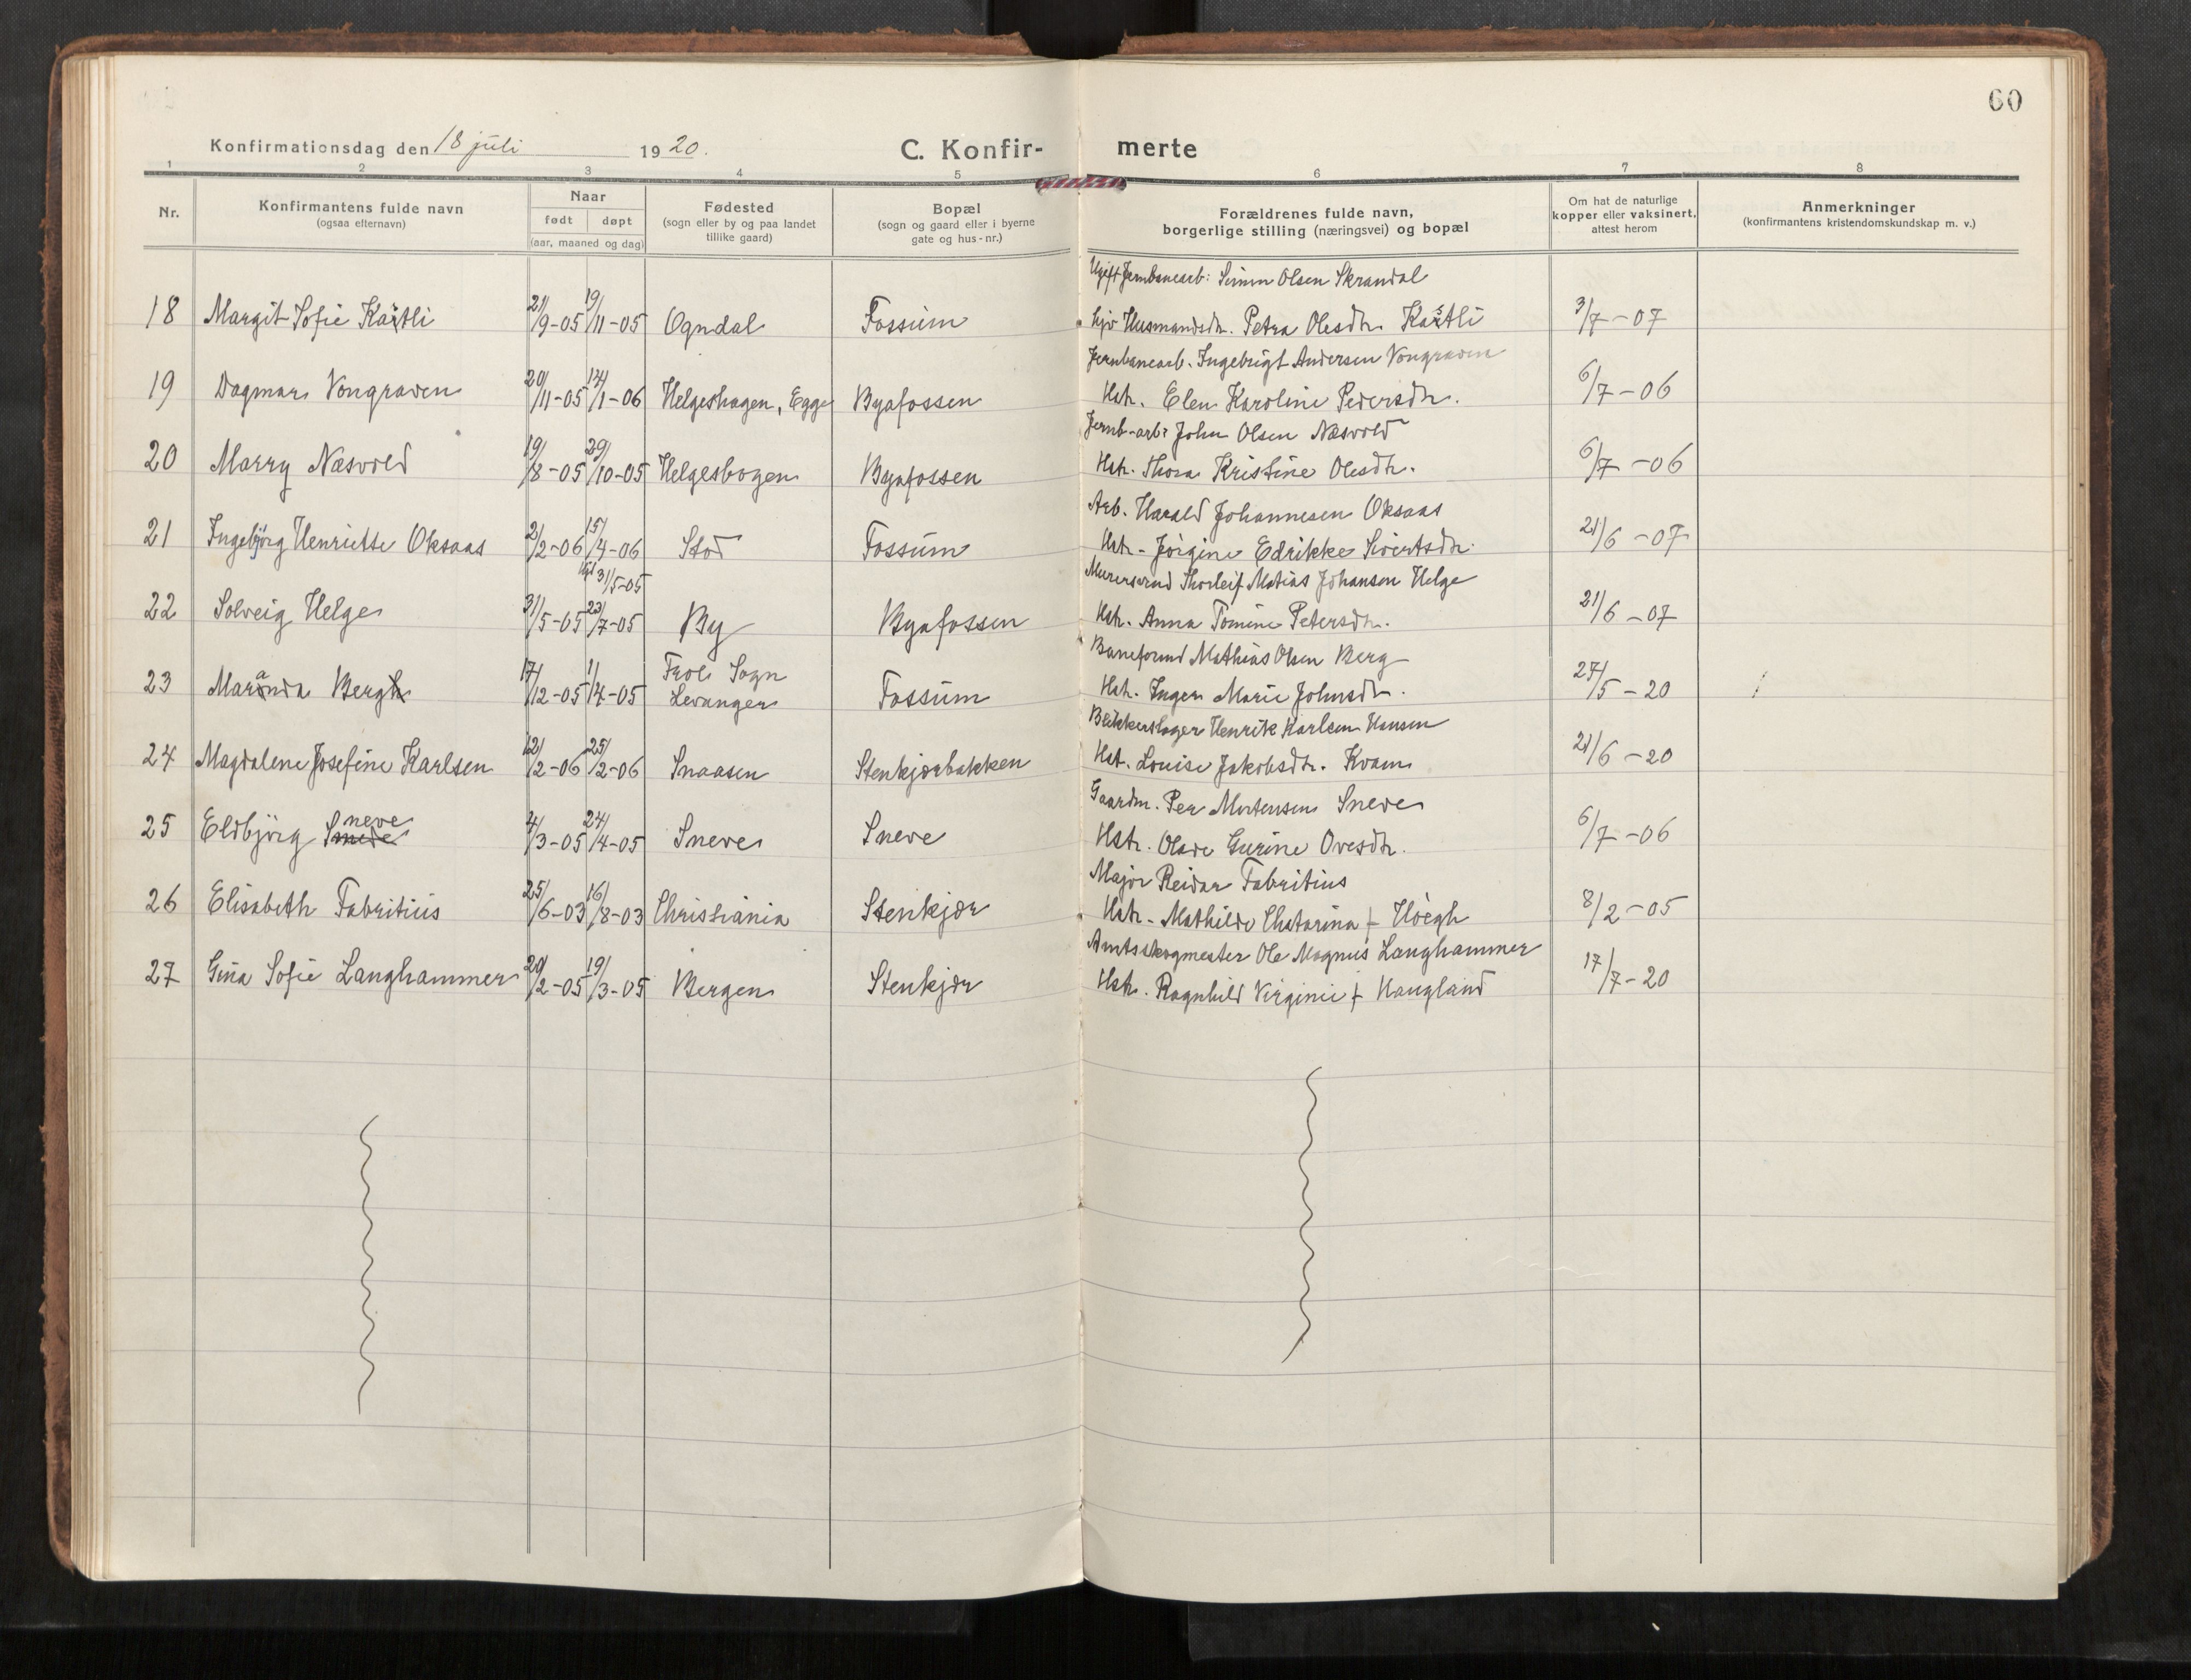 60
Konfirmationsdag den 18 juli 1920.
C. Konfir- merte
1 2 3 4 5 6 7 8
Nr.
Konfirmantens fulde navn
(ogsaa efternavn)
Naar
født døpt
(aar, maaned og dag)
Fødested
(sogn eller by og paa landet
tillike gaard)
Bopæl
(sogn og gaard eller i byerne
gate og hus-nr.)
Forældrenes fulde navn,
borgerlige stilling (næringsvei) og bopæl
Om hat de naturlige
kopper eller vaksinert,
attest herom
Anmerkninger
(konfirmantens kristendomskundskap m. v.)
Ugift Jernbanearb: Simon Olsen Skrandal
18 Margit Sofie 21/9-05 19/11-05 Ogndal Fossum Husmandsdtr. Petra Olesdtr. 3/7-07
Jernbanearb. Ingebrigt Andersen Vongraven
19 Dagmar Vongraven 20/11-05 /1-06 Helgeshagen, Egge Byafossen Hstr. Elen Karoline Pedersdtr. 6/7-06
Jernb-arb: John Olsen Næsvold
20 Marry Næsvold 19/8-05 29/10-05 Helgeshagen Byafossen Hstr. Thora Kristine Olesdtr. 6/7-06
Arb. Harald Johannesen Oksaas
21 Ingebjørg Henriette Oksaas 2/2-06 15/4-06 Stod Fossum Hstr. Jørgine Edrikke Sivertsdtr. 21/6-07
31/5-05
Murersvend Thorleif Matias Johansen Helge
22 Solveig Helge 31/5-05 23/7-05 By Byafossen Hstr. Anna Tomine Petersdtr. 21/6-07
Frol Sogn Baneformd Mathias Olsen Berg
23 Maranda Bergh 17/12-05 1/4-05 Levanger Fossum Hstr. Inger Marie Johnsdtr. 27/5-20
Blikkenslager Henrik Karlsen Hansen
24 Magdalene Josefine Karlsen 12/2-06 25/2-06 Snaasen Stenkjærbakken Hst. Louise Jakobsdtr. Kvam 21/6-20
Gaardm. Per Mortensen Sneve
neve
25 Eldbjörg Snede 4/3-05 24/4-05 Sneve Sneve Hstr. Olave Gurine Ovesdtr. 6/7-06
Major Reidar Fabritius
26 Elisabeth Fabritius 25/6-03 16/8-03 Christiania Stenkjær Hstr. Mathilde Chatarina f. Höegh 8/2-05
Amtsskogmester Ole Magnus Langhammer
27 Gina Sofie Langhammer 20/2-05 19/3-05 Bergen Stenkjær Hstr. Ragnhild Virginie f. Haugland 17/7-20